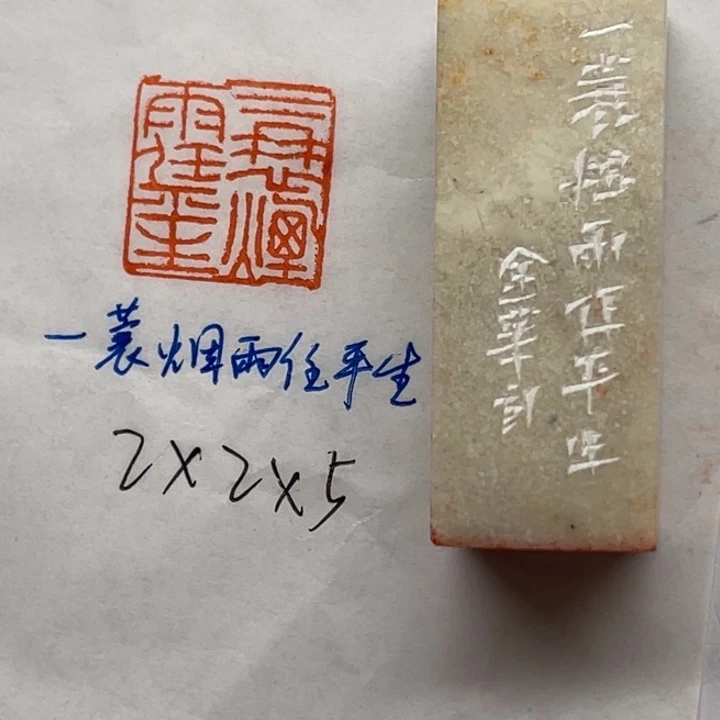 一蓑煙
雨任平生
一蓑烟雨任平生
2×2×5
一蓑烟雨任平生
金華刻